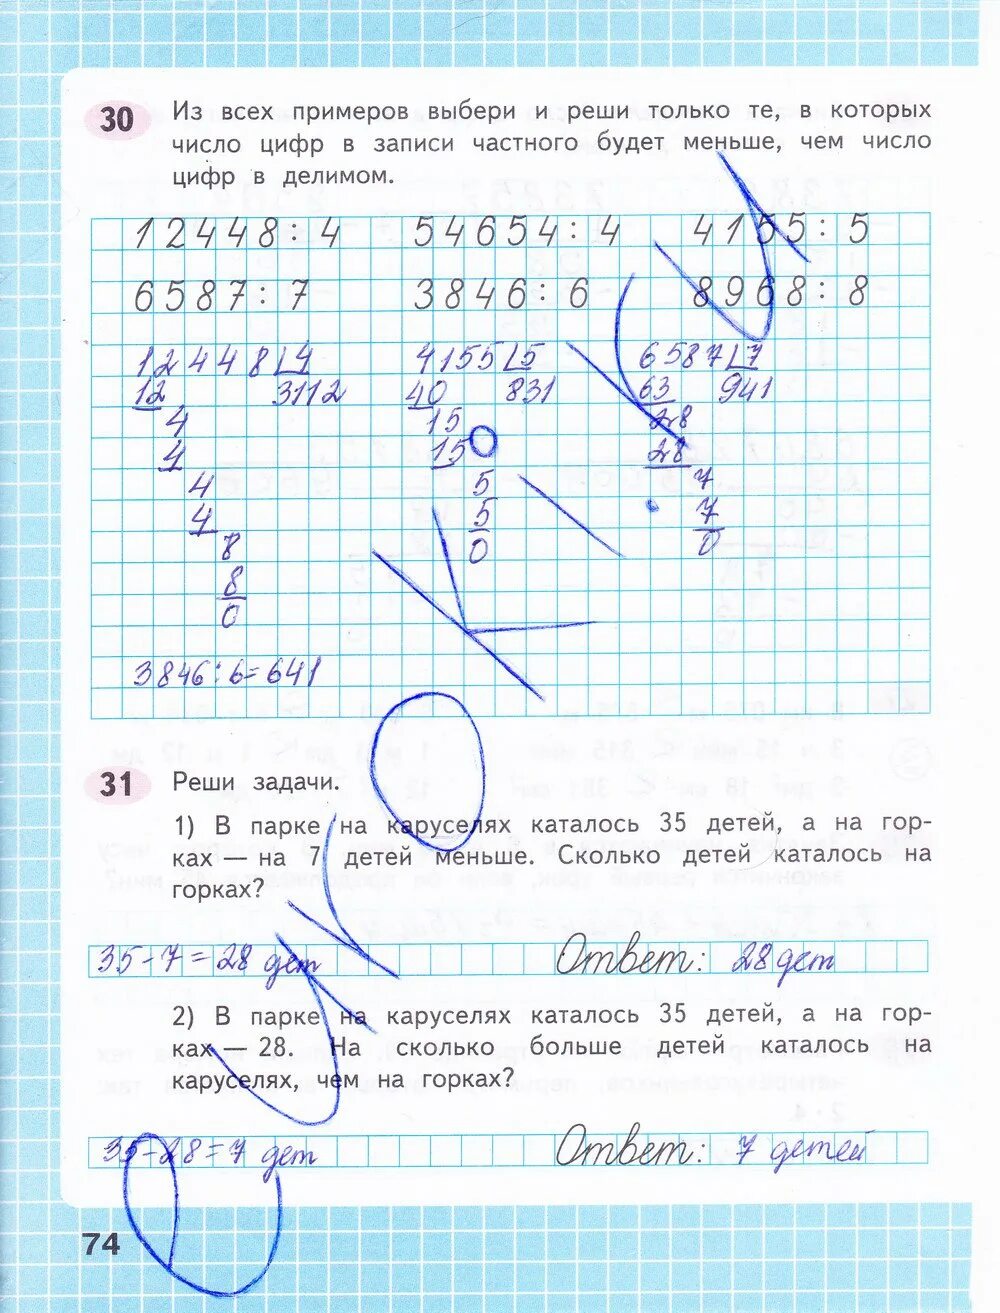 30 Из всех примеров выбери и реши только те, в которых
число цифр в записи частного будет меньше, чем число
цифр в делимом.
12448 : 4 54654 : 4 4155 : 5
6587 : 7 3846 : 6 8968 : 8
12448 4 4155 5 6587 7
12 3112 40 831 63 941
4 15 28
4 15 28
4 5 7
4 5 7
8 0 0
8
0
3846 : 6 = 641
31 Реши задачи.
1) В парке на каруселях каталось 35 детей, а на гор-
ках — на 7 детей меньше. Сколько детей каталось на
горках?
35 - 7 = 28 дет Ответ: 28 дет
2) В парке на каруселях каталось 35 детей, а на гор-
ках — 28. На сколько больше детей каталось на
каруселях, чем на горках?
35 - 28 = 7 дет Ответ: 7 детей
74